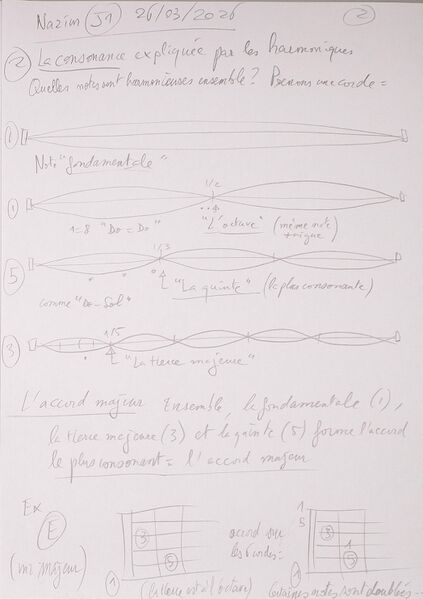 Nazim S1 26/03/2026 2
2 La consonance expliquée par les harmoniques
Quelles notes sont harmonieuses ensemble? Prenons une corde =
1
Note "fondamentale"
1/2
1
1=8 "Do=Do" "L'octave" (même note
+ aigue)
1/3
5
"La quinte" (la plus consonante)
comme "Do-Sol"
3 1/5
"La tierce majeure"
L'accord majeur Ensemble, la fondamentale (1),
la tierce majeure (3) et la quinte (5) forme l'accord
le plus consonant = l'accord majeur
Ex
E
(mi majeur)
3
5
1
(la tierce est à l'octave)
accord sur
les 6 cordes =
1
5
3
1
5
1
Certaines notes sont doublées...